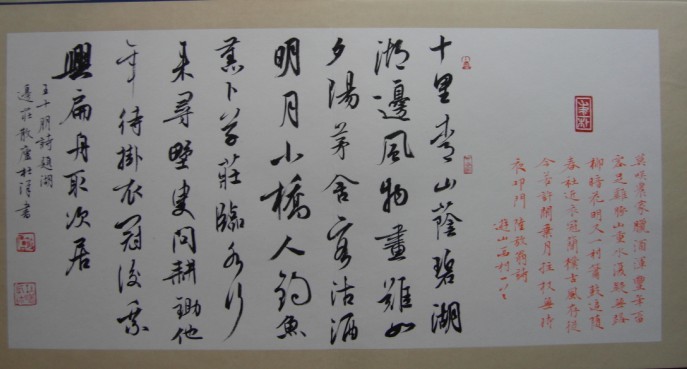 莫笑農家臘酒渾豐年留
客足雞豚山重水複疑無路
柳暗花明又一村簫鼓追隨
春社近衣冠簡樸古風存從
今若許閒乘月拄杖無時
夜叩門 陸放翁詩
遊山西村一首
十里青山蔭碧湖
湖邊風物畫難如
夕陽茅舍客沽酒
明月小橋人釣魚
舊卜草莊臨水竹
來尋野叟問耕鋤他
年待掛衣冠後乘
興扁舟取次居
王十朋詩題湖
邊莊散廬杜書